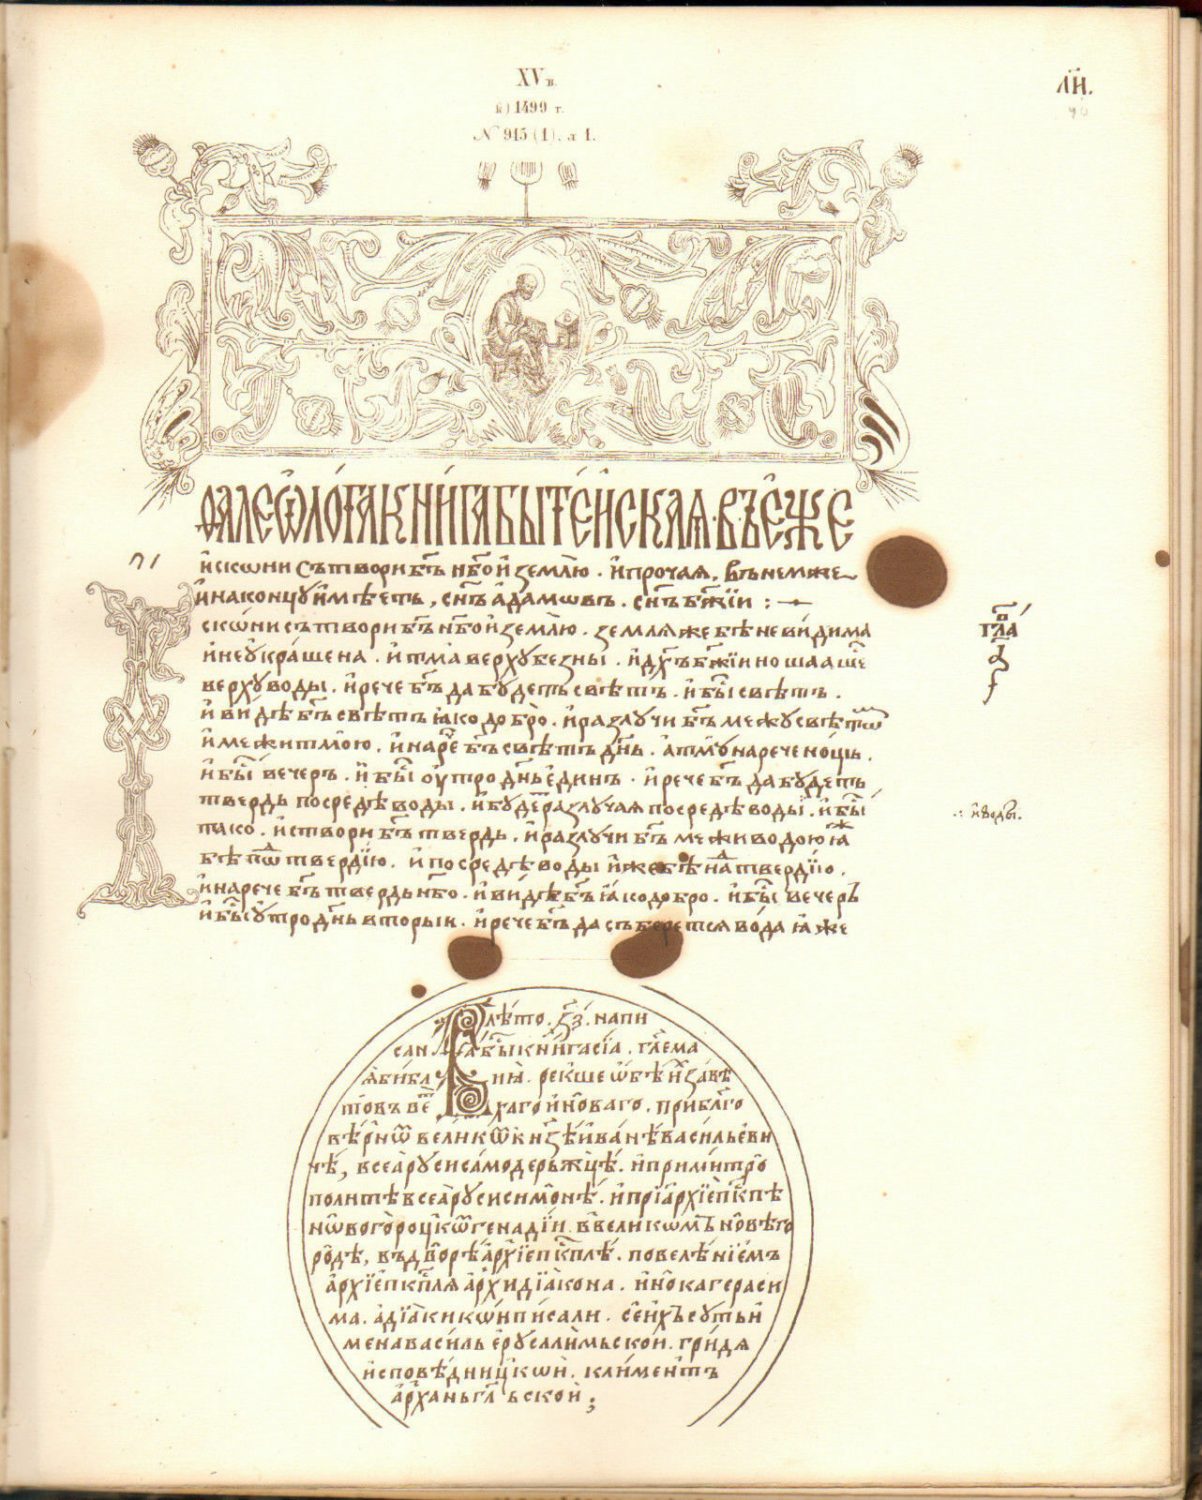 XV в.
к) 1499 г.
№ 915 (1). л 1.
л҃и.
ѲАЛЕѠЛОГА КНИГА БЫТЕЙСКАЯ · ВЪ ЕЖЕ
и҆скони сътвори бг҃ъ нб҃о и҆ землю . и҆ прочая , въ немже
и҆ на концу и҆мѣеть , сн҃ъ а҆дамовъ . сн҃ъ бж҃їи :
скѡни сътвори бг҃ъ нб҃о и҆ землю . земля же бѣ невидима
и҆ неукрашена . и҆ тма верху безны . и҆ дх҃ъ бж҃їи ношааше
верху воды . и҆ рече бг҃ъ да будеть свѣтъ . и҆ бы҃ свѣтъ .
и҆ видѣ бг҃ъ свѣтъ ꙗко добро . и҆ разлучи бг҃ъ межу свѣтѡ
и҆ межи тмою . и҆ наре бг҃ъ свѣтъ дн҃ь . а тму нарече нощь .
и҆ бы҃ вечеръ . и҆ бы҃ оутро дн҃ь единъ . и҆ рече бг҃ъ да будеть
твердь посредѣ воды . и҆ буде разлучая посредѣ воды . и҆ бы҃
тако . и҆ створи бг҃ъ твердь . и҆ разлучи бг҃ъ межи водою ꙗж
бѣ по твердїю . и҆ посредѣ воды и҆же бѣ на твердїю .
и҆ нарече бг҃ъ твердь нб҃о . и҆ видѣ бг҃ъ ꙗко добро . и҆ бы҃ вечеръ
и҆ бы҃ утро дн҃ь вторыи . и҆ рече бг҃ъ да съберется вода ꙗже
гла
и҆ воды.
В лѣто . ҂зз҃ . напи
сана бы҃ книга сїа . гл҃ема
я библ иа . рекше ѡбѣи҆х завѣ
товъ ве тхаго и҆ новаго . при бл҃го
вѣрнѡ великѡ кнзѣ иванѣ васильеви
чѣ , всеа руси самодерьжцѣ . и҆ при митро
политѣ всеа руси симонѣ . и҆ при архїеп҃кпѣ
нѡвогороцкѡ генадїи . в великѡмъ новѣго
родѣ , въ дворѣ архїеп҃кплѣ . повелѣнїемъ
архїеп҃кпля архидїакона . и҆нока гераси
ма . а дїаки кѡи писали . се и҆хъ суть и҆
мена василь ерусалимьскои . гридя
исповѣдницкѡи . климентъ
арханьгл҃ьскои ;